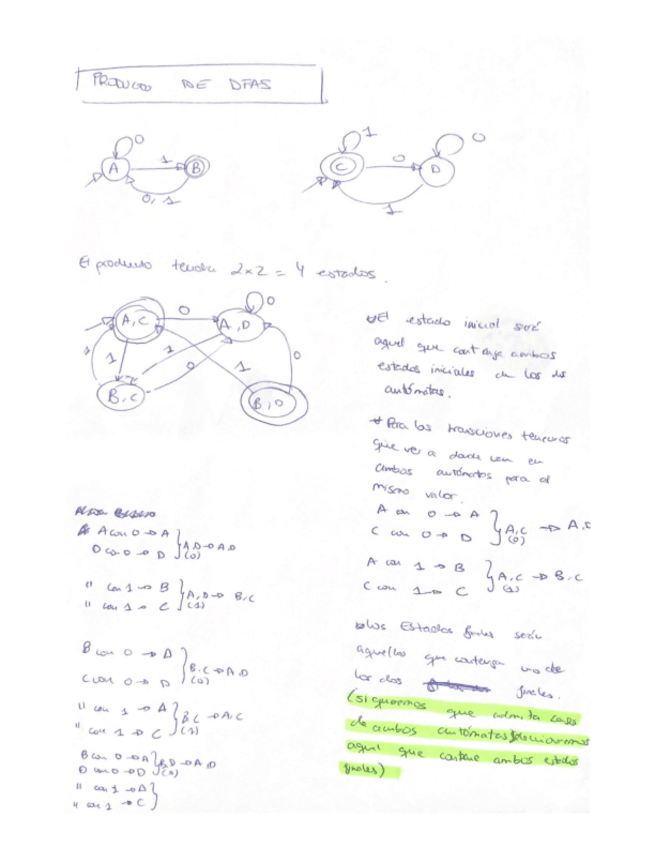 PRODUCO DE DFAS
0
1
A
B
0, 1
1
0
C
D
0
1
El producto tendra 2x2 = 4 estados.
A,C
0
A,D
0
1
1
1
0
1
0
B,C
B,D
El estado inicial será
aquel que contenga ambos
estados iniciales de los dos
autómatas.
* Para las transiciones tenemos
que ver a donde van en
ambos autómatas para el
mismo valor.
A con 0 → A
C con 0 → D
A,C → A,D
(0)
A con 1 → B
C con 1 → C
A,C → B,C
(1)
Los Estados finales serán
aquellos que contengan uno de
los dos finales.
(si queremos que admita casos
de ambos autómatas
aquel que contiene ambos estados
finales)
A con 0 → A
D con 0 → D
A,D → A,D
(0)
" con 1 → B
" con 1 → C
A,D → B,C
(1)
B con 0 → A
C con 0 → D
B,C → A,D
(0)
" con 1 → A
" con 1 → C
B,C → A,C
(1)
B con 0 → A
D con 0 → D
B,D → A,D
(0)
" con 1 → A
" con 1 → C